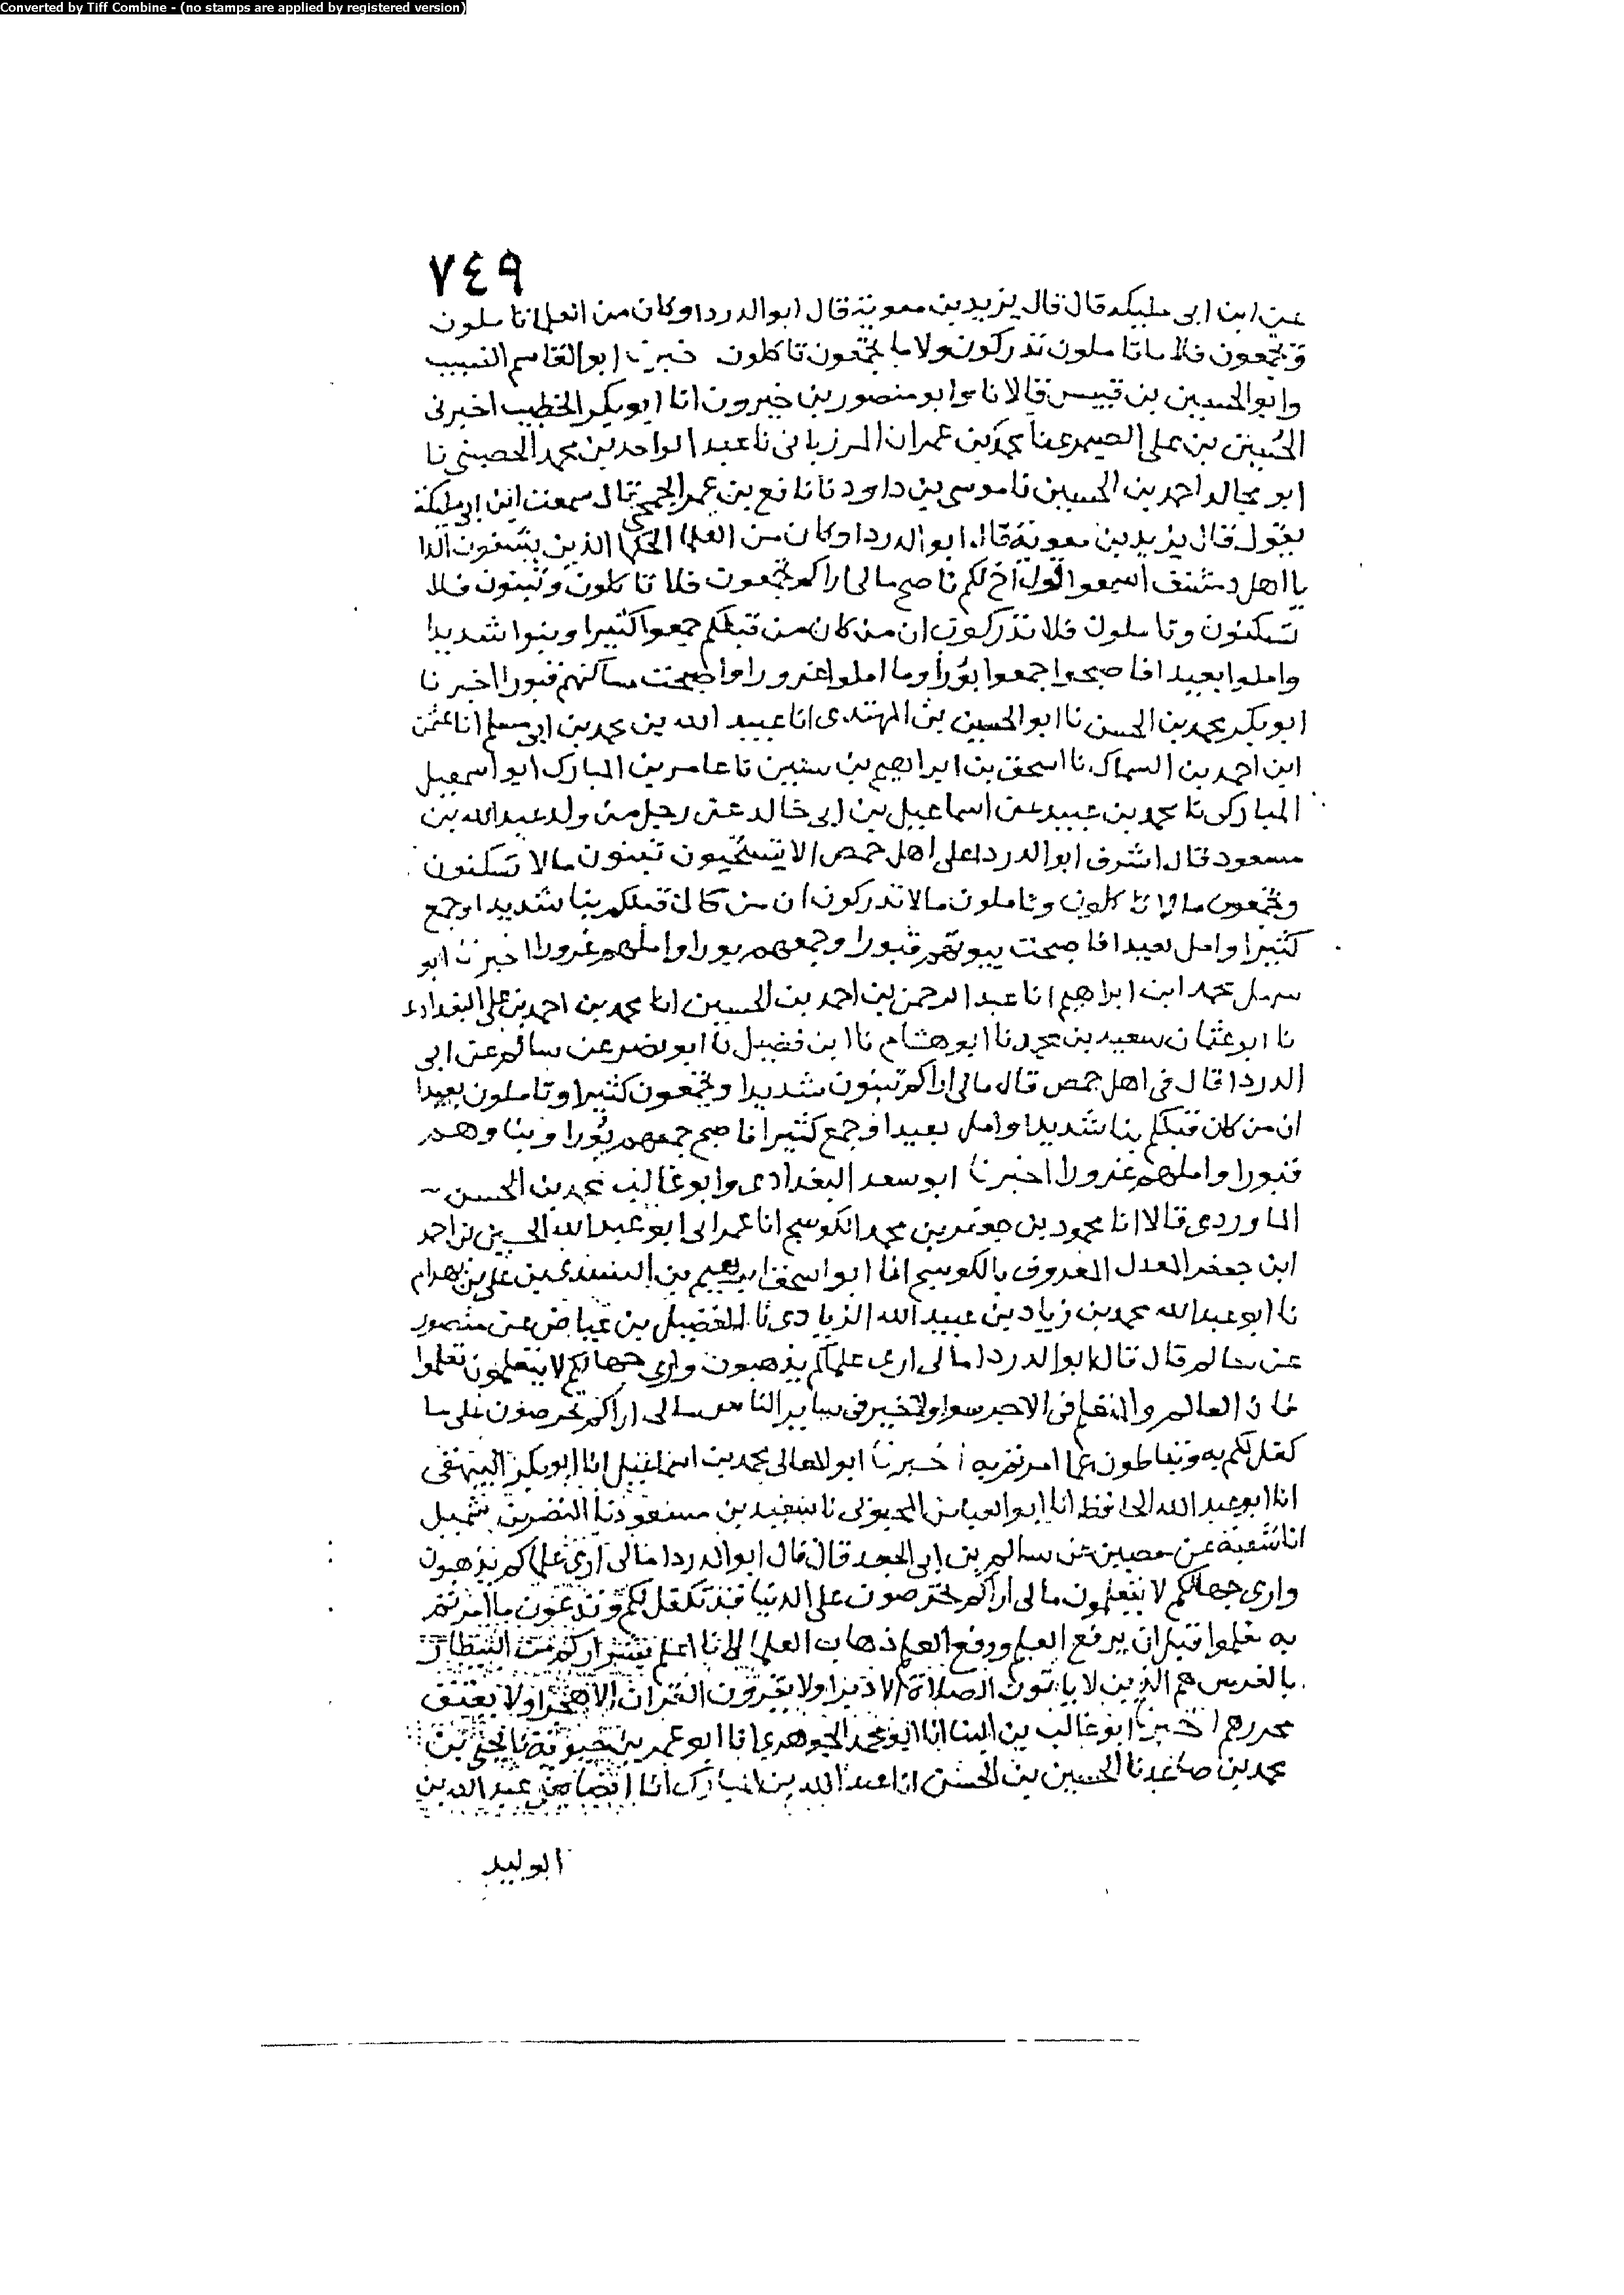 Converted by Tiff Combine - (no stamps are applied by registered version)
٧٤٩
عن ابن ابى مليكه قال قال يزيد بن معوية قال ابو الدرداء وكان من العلما تاملون
وتجمعون فلا ما تاملون تدركون ولا ما تجمعون تاكلون خبرنا ابو القاسم النسيب
وابو الحسين بن قبيس قالا نا وابو منصور بن خيرون انا ابو بكر الخطيب اخبرنى
الحُسين بن على الصيمرى نا محمد بن عمران المرزبانى نا عبد الواحد بن محمد الخصيبى نا
ابو مجالد احمد بن الحسين نا موسى بن داود نا نافع بن عمر الجمحى قال سمعت ابن ابى مليكة
يقول قال يزيد بن معوية قال ابو الدردا وكان من العلما الحكما الذين يشفون الدا
يا اهل دمشق اسمعوا قول اخ لكم ناصح مالى اراكم تجمعون فلا تاكلون وتبنون فلا
تسكنون وتاملون فلا تدركون ان من كان من قبلكم جمعوا كثيرا وبنوا شديدا
واملوا بعيدا فاصبحوا جمعوا بُورا وما املوا غرورا واصبحت مساكنهم قبورا اخبرنا
ابو بكر محمد بن الحسن نا ابو الحسين بن المهتدى انا عبيد الله بن محمد بن ابى مسلم انا عثمن
ابن احمد بن السماك نا اسحق بن ابراهيم بن سنين نا عامر بن المبارك ابو اسمعيل
المباركى نا محمد بن عبيد عن اسماعيل بن ابى خالد عن رجل من ولد عبد الله بن
مسعود قال اشرف ابو الدرداء على اهل حمص الا تستحيون تبنون مالا تسكنون
وتجمعون مالا تاكلون وتاملون مالا تدركون ان من كان قبلكم بنا شديدا وجمع
كثيرا وامل بعيدا فاصبحت بيوتهم قبورا وجمعهم بورا واملهم غرورا اخبرنا ابو
سهل محمد ابن ابراهيم انا عبد الرحمن بن احمد بن الحسين انا محمد بن احمد بن على البغدادى
نا ابو عثمان سعيد بن محمد نا ابو هشام نا ابن فضيل نا ابو نضر عن سالم عن ابى
الدردا قال فى اهل حمص قال مالى اراكم تبنون شديدا وتجمعون كثيرا وتاملون بعيدا
ان من كان قبلكم بنا شديدا وامل بعيدا وجمع كثيرا فاصبح جمعهم بُورا وبناوهم
قبورا واملهم غرورا اخبرنا ابو سعد البغدادى وابو غالب محمد بن الحسن
الماوردى قالا انا محمود بن جعفر بن محمد الكوسج انا عم ابى ابو عبد الله الحسين بن احمد
ابن جعفر المعدل المعروف بالكوسج انا ابو اسحق ابراهيم بن السندى بن على بن بهرام
نا ابو عبد الله محمد بن زياد بن عبيد الله الزيادى نا الفضيل بن عياض عن منصور
عن سالم قال قال ابو الدردا مالى ارى علماكم يذهبون وارى جهالكم لا يتعلمون تعلموا
فان العالم والمتعلم فى الاجر سوا ولا خير فى ساير الناس مالى اراكم تحرصون على ما
كفل لكم به وتباطون عما امرتم به اخبرنا ابو المعالى محمد بن اسماعيل انا ابو بكر البيهقى
انا ابو عبد الله الحافظ انا ابو العباس المحبوبى نا سعيد بن مسعود نا النضر بن شميل
انا شعبة عن حصين عن سالم بن ابى الجعد قال قال ابو الدردا مالى ارى علماكم يذهبون
وارى جهالكم لا يتعلمون مالى اراكم تحرصون على الدنيا قد تكفل لكم وتدعون ما امرتم
به تعلموا قبل ان يرفع العلم ورفع العلم ذهاب العلما لانا اعلم بشراركم من البيطار
بالفرس هم الذين لا ياتون الصلاة الا دبرا ولا يقرون القران الا هجرا ولا يعتق
محررهم اخبرنا ابو غالب بن البنا انا ابو محمد الجوهرى انا ابو عمر بن حيوية نا يحيى بن
محمد بن صاعد نا الحسين بن الحسن انا عبد الله بن المبارك انا ايضا عبد الله بن
ابو لبيد